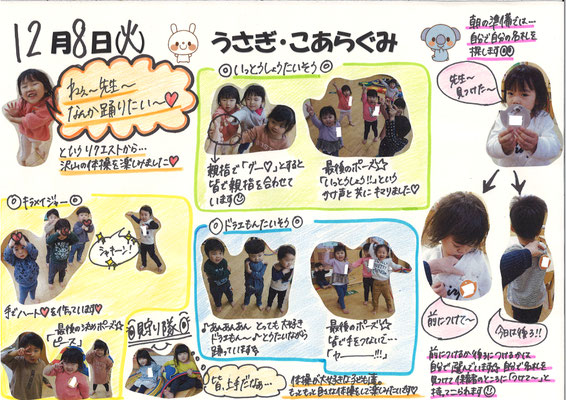 12月8日(火)
うさぎ・こあらぐみ
ねぇ〜先生〜
なんか踊りたい〜♡
というリクエストから…
沢山の体操を楽しみました♡
◎いっとうしょうたいそう◎
親指で「グー♡」とすると
皆で親指を合わせて
います☺
最後のポーズ☆
「いっとうしょう!!」という
かけ声と共にキマりました♡
朝の準備では…
自分で自分の名札を
探します
先生〜
見つけた〜
前につけて〜
今日は後ろ!!
前につけるか後ろにつけるかは
自分で選んでいます☆自分で名札を
見つけて保育者のところに「つけて〜」と
持ってこられます☺
◎キラメイジャー◎
シャキーン!
手でハート♡を作っています♡
最後の決めポーズ☆
「ピース」
見守り隊
皆、上手だなぁ…
◎ドラえもんたいそう◎
♪あんあんあん とっても大好き
ドラえもん〜♪とうたいながら
踊っています☆
最後のポーズ☆
皆で手をつないで…
「ヤーーー!!!」
体操が大好きな子ども達。
もっともっと色々な体操をして楽しみたいです♡